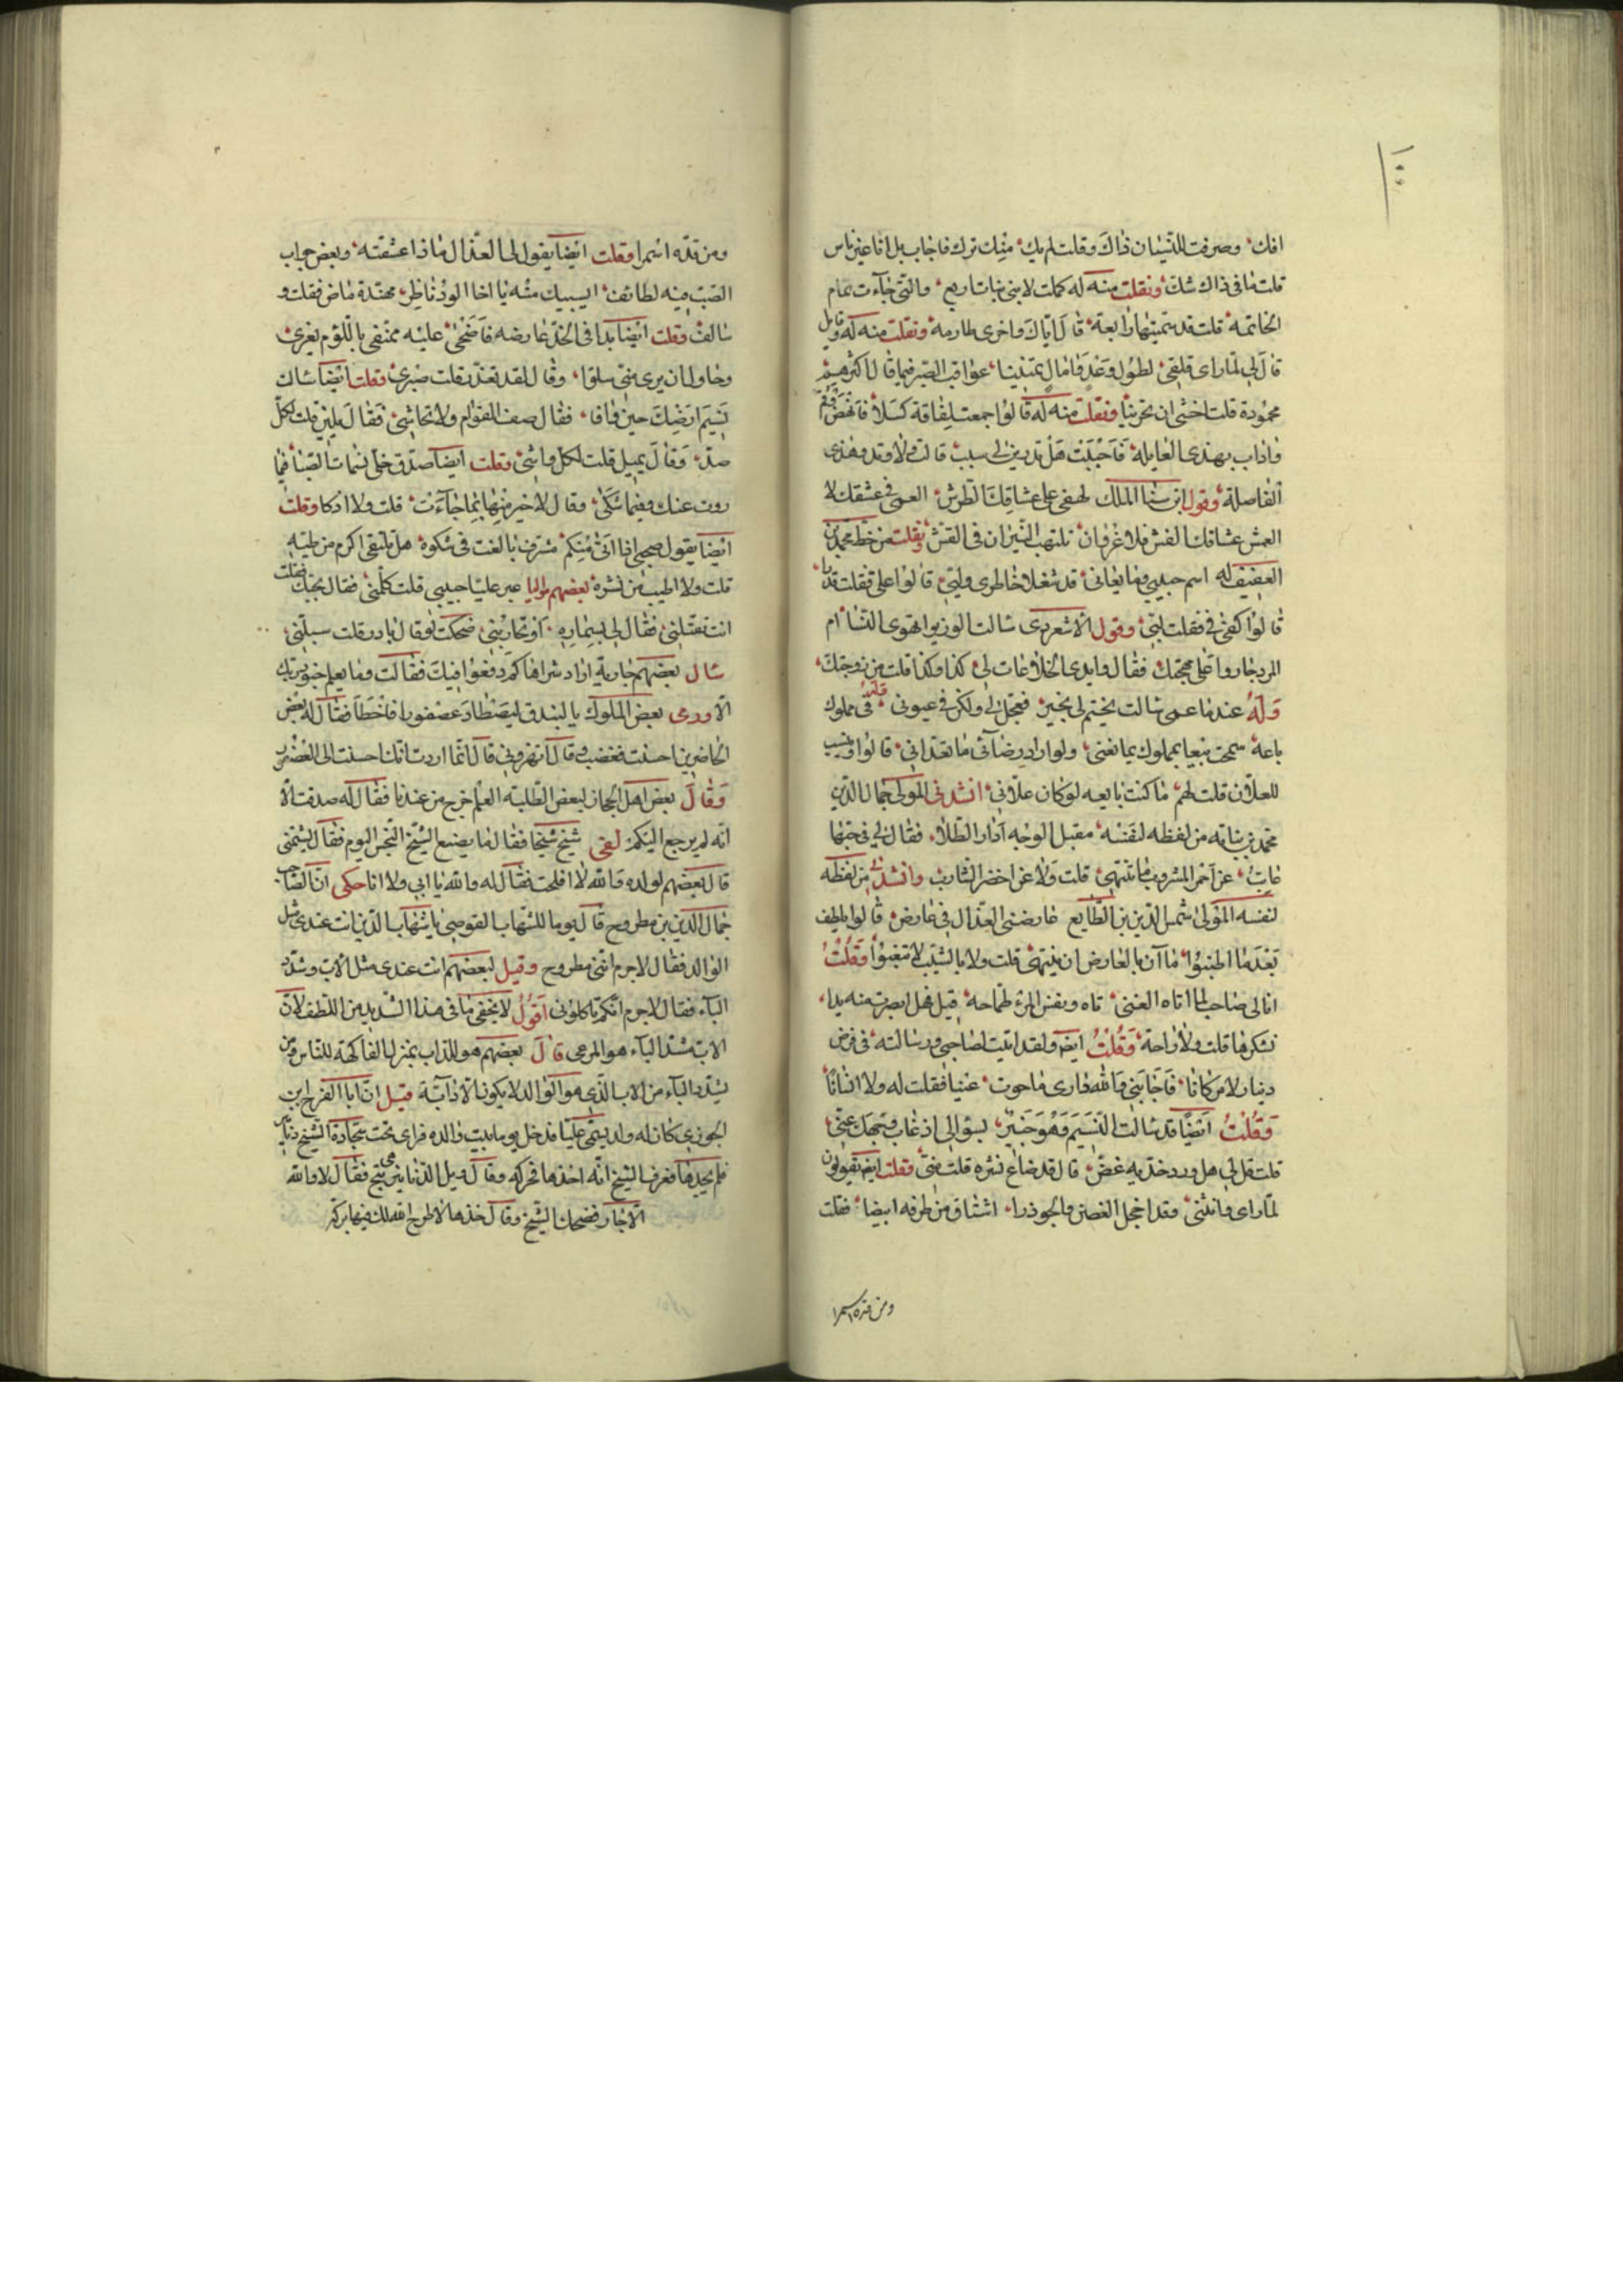 افك وصرفت للتيسان ذاك وقلت لم يك منك ترك فاجاب بل انا غير ناس
قلت ما فى ذاك شك ونقلت منه له كملت لابنى بنات اربع والتى جآءت تمام
الخاتمة قلت قد سميتها رابعة قال اياك واخرى طارمة ونقلت منه له
قال لى لما راى قلقى لطول وعد وامال تمنينا عواقب الصبر فيما قال اكثرهم
محمودة قلت اخشى ان تخرينا ونقلت منه له قالوا جمعت لفاقة كسلا فانهض
واذاب بهذى العايلة فاجبت هل تدرين لى سبب قالت ولا وتد وهذى
الفاصلة وقول ابن سنا الملك لهفى على عشاقك الطرش العمى فى عشقك لا
العمش عشاقك الفش فلا غرو ان تلتهب النيران فى القش ونقلت من خط محمد بن
العفيف له اسم حبيبى وما يعانى قد شغلا خاطرى ولبى قالوا على فقلت قدرا
قالوا كفى فقلت لبى وقول الاسعردى سالت الوزير اتهوى النسا ام
المرد جاروا على مهجتك فقال وابدى الخلاعات لى كذا وكذا قلت من زوجتك
وله عندما عمى سالت يختم لى بخير فعجل لى ولكن فى عيونى فى مملوك
باعه سمحت بيعا بمملوك يمانعنى ولو اراد رضآئى ما تعدانى قالوا وينسب
للعلان قلت لهم ما كنت بايعه لو كان علانى انشدنى المولى جمال الدين
محمد بن نباتة من لفظه لنفسه مقبل الوجه ادار الطلا فقال لى فى حبها
عاتب عن احمر المشروب ما تنتهى قلت ولا عن اخضر الشارب وانشدنى من لفظه
لنفسه المولى شمس الدين بن الصايغ عارضنى العذال فى عارض قالوا بلطف
بعدما اطنبوا ما آن بالعارض ان ينتهى قلت ولا بالشيب لا تتعبوا وقلت
انا لى صاحب لما اتاه الغنى تاه ونفس المرء طماحة قيل فهل ابصرت منه يدا
تشكرها قلت ولا راحة وقلت ايضا ولقد اتيت لصاحبى وسالته فى قرض
دينار لامر كانا فاجابنى والله دارى ما حوت عينا فقلت له ولا انسانا
وقلت ايضا قد سالت النسيم وهو خبير بسؤالى اذ غاب وجهك عنى
قلت قل لى هل ورد خديه غض قال قد ضاع نشره قلت منى وقلت ايضا يقولون
لما راى وانثنى وقد اخجل الغصن والجوذرا اشتاق من طرفه ابيضا فقلت
ومن قده اسمرا
ومن قده اسمرا وقلت ايضا يقول لى العذال ماذا عشقته وبعض جواب
الصب فيه لطائف ايسبيك منه يا اخا الود ناظر محدة ماض فقلت و
سالف وقلت ايضا بدا فى الخد عارضه فاضحى عليه معنفى باللوم يغرى
وحاول ان يرى منى سلوا وقال لقد تعذر فقلت صبرى وقلت ايضا سالت
نسيم ارضك حين وافا فقال صف القوام ولا تحاشى فقال يلين قلت لكل
صد وقال يميل قلت لكل واشى وقلت ايضا صدق خلى نسمات الصبا فيما
روت عنك وفيما شكى وقال لا خير منها بما جاءت قلت ولا اذكا وقلت
ايضا يقول صحبى اذا اتى منكم مشرف بالغت فى شكره هل تلتقى اكرم من طيه
قلت ولا اطيب من نشره بعضهم مواليا عبر عليا حبيبى قلت كلمنى فقال بختك فقلت
انت تقتلنى فقال لى اوتحاربنى ضحكت لو قال بادر قلت سبلنى
سال بعضهم جارية اراد شراها كم دفعوا فيك فقالت وما يعلم جنود ربك
الا هو ورمى بعض الملوك بالبندق ليصطاد عصفورا فاخطا فقال له بعض
الحاضرين احسنت فغضب وقال اتهزؤنى قال انما اردت انك احسنت الى العصفور
وقال بعض اهل الحجاز لبعض الطلبة العلم خرج من عندنا فقال له صدقت الا
انه لم يرجع اليكم لقى شيخ شيخا فقال ما يصنع الشيخ النجس اليوم فقال يشتمنى
قال بعضهم لولده والله لا افلحت فقال له والله يا ابى ولا انا حكى ان الصاحب
جمال الدين بن مطروح قال يوما للشهاب القوصى يا شهاب الدين انت عندى مثل
الوالد فقال لا جرم اننى مطروح وقيل لبعضهم انت عندى مثل الاب وشدد
البآء فقال لا جرم انكم تاكلونى اقول لا يخفى ما فى هذا التشديد من اللطف لان
الاب مشدد البآء هو المرعى قال بعضهم هو للذاب بمنزلة الفاكهة للناس ومن
يشدد البآء من الاب الذى هو الوالد لا يكون الا دآبة قيل ان ابا الفرج ابن
الجوزى كان له ولد يسمى عليا فدخل يوما بيت والده فراى تحت سجادة الشيخ دنانير
فلم يجدها فعرف الشيخ انه اخذها فحركه وقال قيل الدنانير متى تبح فقال لا والله
الا خار فضحك الشيخ وقال خذها لا طرح الله لك فيها بركة